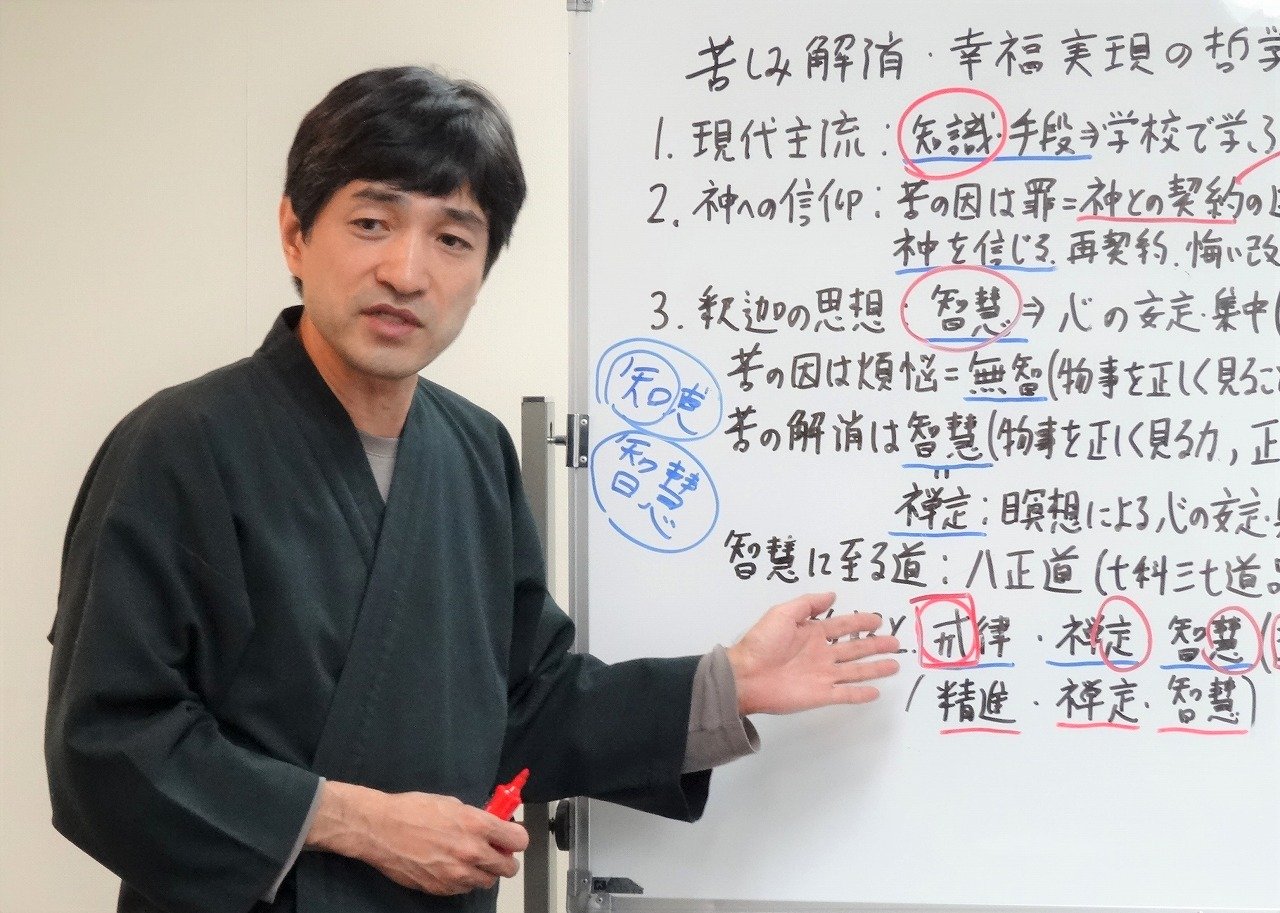 苦しみ解消・幸福実現の哲学
1. 現代主流：知識・手段⇒学校で学ぶ
2. 神への信仰：苦の因は罪＝神との契約の
神を信じる. 再契約. 悔い改
3. 釈迦の思想・智慧⇒心の安定・集中
苦の因は煩悩＝無智(物事を正しく見るこ
苦の解消は智慧(物事を正しく見る力, 正
禅定：瞑想による心の安定・
智慧に至る道：八正道(七科三七道品
戒律・禅定 智慧(
(精進・禅定・智慧)
知恵
智慧